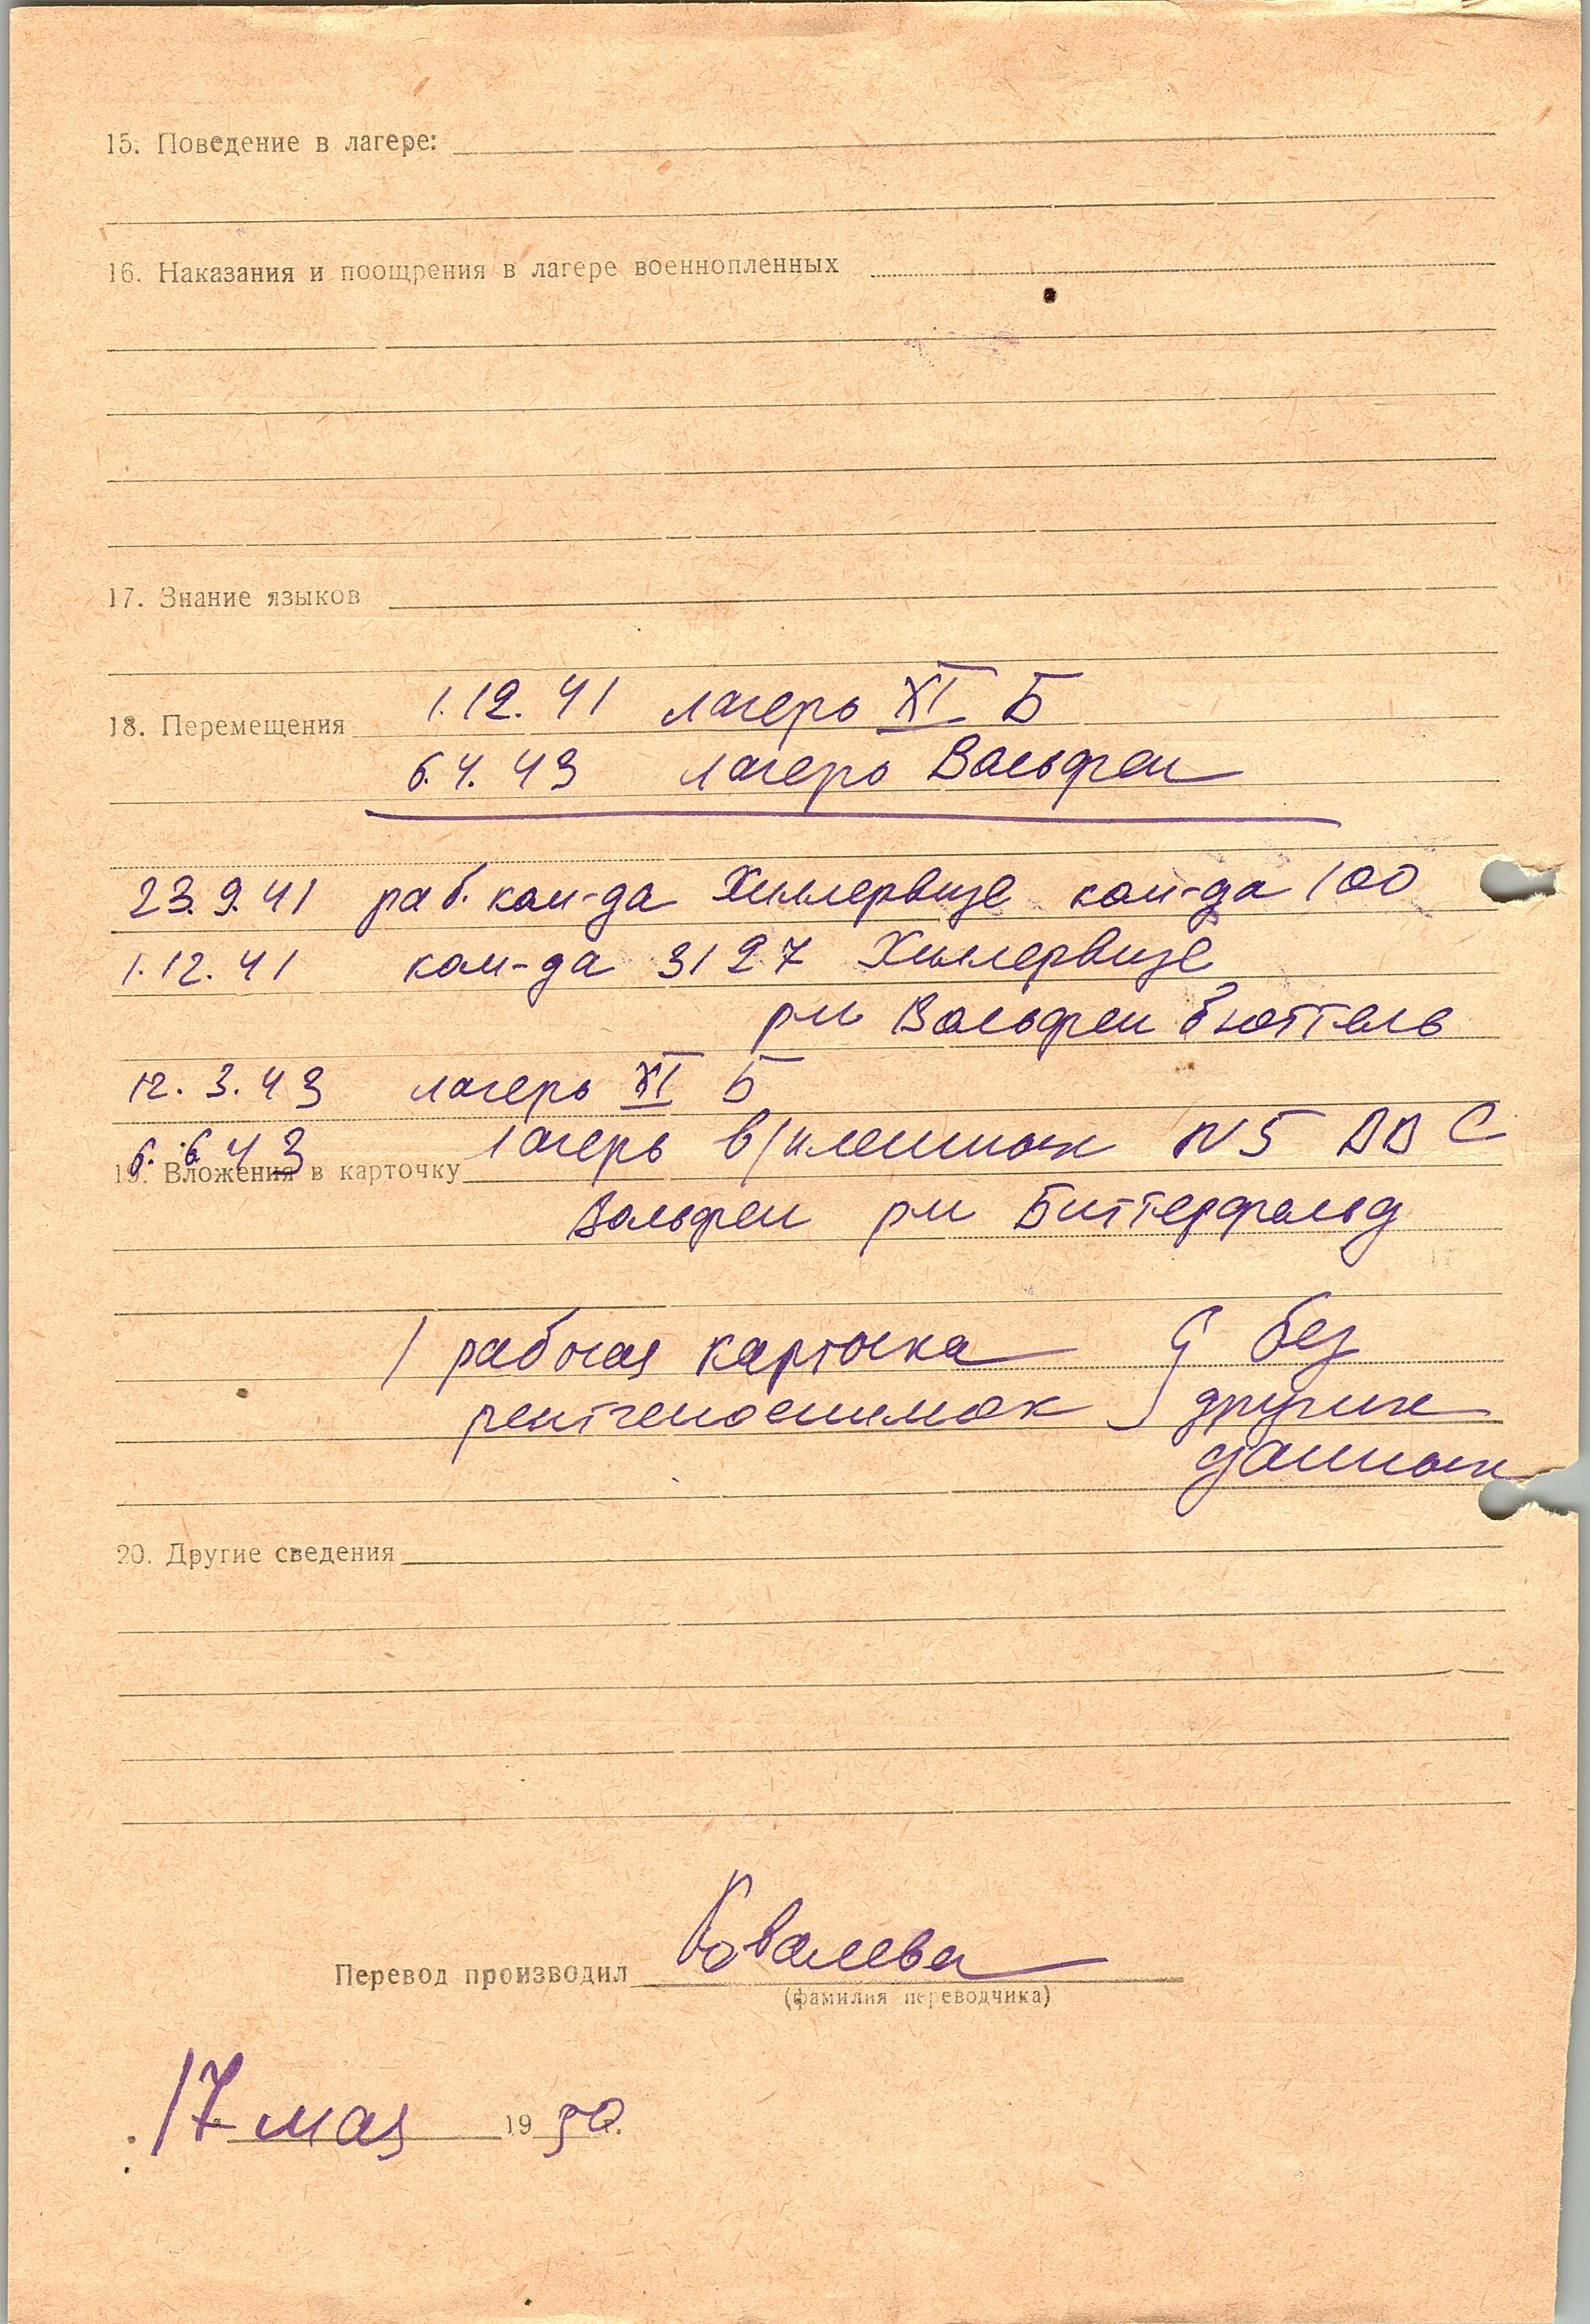 15. Поведение в лагере:
16. Наказания и поощрения в лагере военнопленных
17. Знание языков
18. Перемещения 1.12.41 лагерь XI Б
6.4.43 лагерь Вольфен
23.9.41 раб. ком-да Хиллервизе ком-да 100
1.12.41 ком-да 3127 Хиллервизе
рн Вольфенбюттель
12.3.43 лагерь XI Б
6.6.43 лагерь в/пленных N5
19. Вложения в карточку
Вольфен рн Биттерфельд
1 рабочая карточка } без
рентгеноснимок других
данных
20. Другие сведения
Перевод производил Ковалева
(фамилия переводчика)
17 мая 1950.